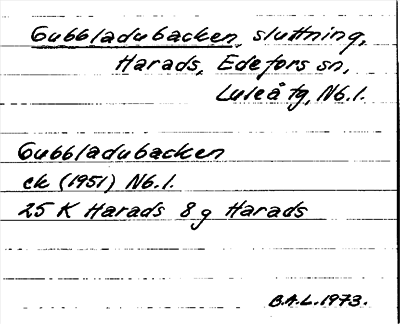 Gubbladubacken, sluttning,
Harads, Edefors sn,
Luleå tg, Nb.l.
Gubbladubacken
ek (1951) Nb.l.
25 K Harads 8 g Harads
B.A.L. 1973.